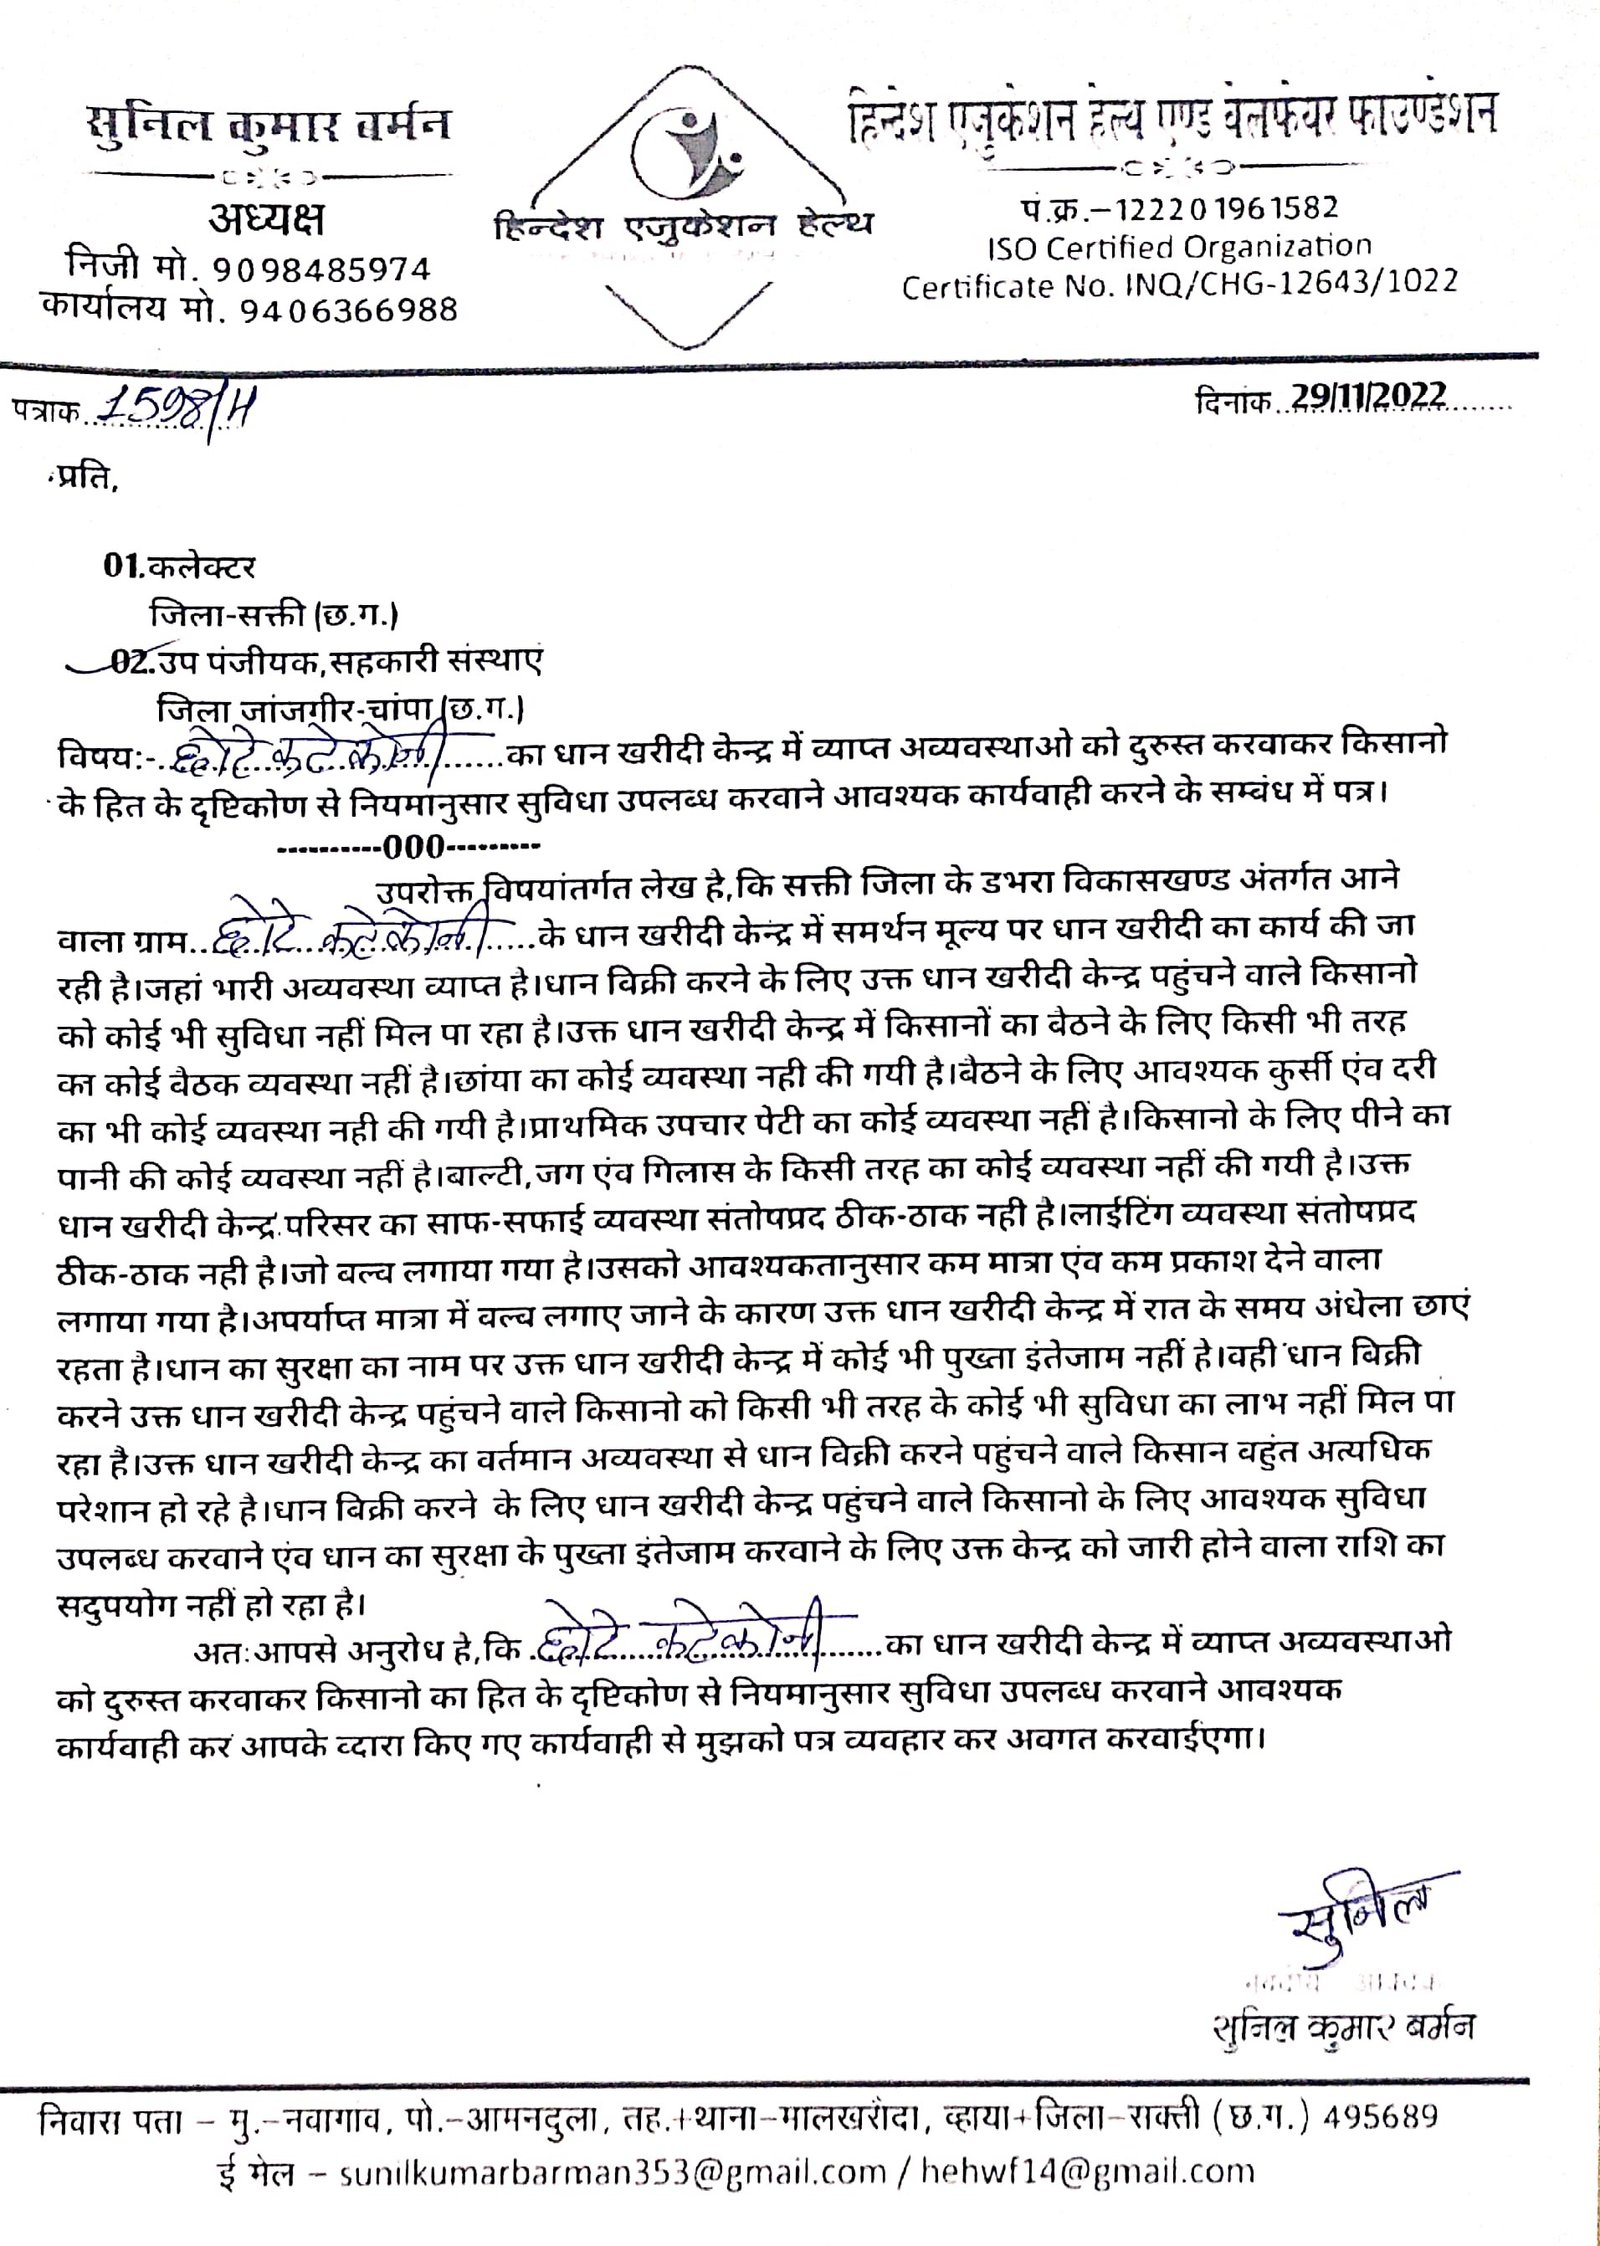 सुनिल कुमार बर्मन
अध्यक्ष
निजी मो. 9098485974
कार्यालय मो. 9406366988
हिन्देश एजुकेशन हेल्थ
हिन्देश एजुकेशन हेल्थ एण्ड वेलफेयर फाउण्डेशन
पं.क्र.–122201961582
ISO Certified Organization
Certificate No. INQ/CHG-12643/1022
पत्राक 1598/H
दिनांक 29/11/2022
प्रति,
01.कलेक्टर
जिला-सक्ती (छ.ग.)
02.उप पंजीयक,सहकारी संस्थाएं
जिला जांजगीर-चांपा (छ.ग.)
विषय:-..छोटे कटेकोनी......का धान खरीदी केन्द्र में व्याप्त अव्यवस्थाओ को दुरुस्त करवाकर किसानो
के हित के दृष्टिकोण से नियमानुसार सुविधा उपलब्ध करवाने आवश्यक कार्यवाही करने के सम्बंध में पत्र।
----------000---------
उपरोक्त विषयांतर्गत लेख है,कि सक्ती जिला के डभरा विकासखण्ड अंतर्गत आने
वाला ग्राम..छोटे कटेकोनी.....के धान खरीदी केन्द्र में समर्थन मूल्य पर धान खरीदी का कार्य की जा
रही है।जहां भारी अव्यवस्था व्याप्त है।धान विक्री करने के लिए उक्त धान खरीदी केन्द्र पहुंचने वाले किसानो
को कोई भी सुविधा नहीं मिल पा रहा है।उक्त धान खरीदी केन्द्र में किसानों का बैठने के लिए किसी भी तरह
का कोई बैठक व्यवस्था नहीं है।छांया का कोई व्यवस्था नही की गयी है।बैठने के लिए आवश्यक कुर्सी एंव दरी
का भी कोई व्यवस्था नही की गयी है।प्राथमिक उपचार पेटी का कोई व्यवस्था नहीं है।किसानो के लिए पीने का
पानी की कोई व्यवस्था नहीं है।बाल्टी,जग एंव गिलास के किसी तरह का कोई व्यवस्था नहीं की गयी है।उक्त
धान खरीदी केन्द्र परिसर का साफ-सफाई व्यवस्था संतोषप्रद ठीक-ठाक नही है।लाईटिंग व्यवस्था संतोषप्रद
ठीक-ठाक नही है।जो बल्व लगाया गया है।उसको आवश्यकतानुसार कम मात्रा एंव कम प्रकाश देने वाला
लगाया गया है।अपर्याप्त मात्रा में वल्व लगाए जाने के कारण उक्त धान खरीदी केन्द्र में रात के समय अंधेला छाएं
रहता है।धान का सुरक्षा का नाम पर उक्त धान खरीदी केन्द्र में कोई भी पुख्ता इंतेजाम नहीं है।वही धान बिक्री
करने उक्त धान खरीदी केन्द्र पहुंचने वाले किसानो को किसी भी तरह के कोई भी सुविधा का लाभ नहीं मिल पा
रहा है।उक्त धान खरीदी केन्द्र का वर्तमान अव्यवस्था से धान विक्री करने पहुंचने वाले किसान वहुंत अत्यधिक
परेशान हो रहे है।धान बिक्री करने के लिए धान खरीदी केन्द्र पहुंचने वाले किसानो के लिए आवश्यक सुविधा
उपलब्ध करवाने एंव धान का सुरक्षा के पुख्ता इंतेजाम करवाने के लिए उक्त केन्द्र को जारी होने वाला राशि का
सदुपयोग नहीं हो रहा है।
अतःआपसे अनुरोध है,कि .छोटे कटेकोनी.......का धान खरीदी केन्द्र में व्याप्त अव्यवस्थाओ
को दुरुस्त करवाकर किसानो का हित के दृष्टिकोण से नियमानुसार सुविधा उपलब्ध करवाने आवश्यक
कार्यवाही कर आपके व्दारा किए गए कार्यवाही से मुझको पत्र व्यवहार कर अवगत करवाईएगा।
सुनिल
सुनिल कुमार बर्मन
निवास पता – मु.–नवागाव, पो.–आमनदुला, तह.+थाना–मालखरौदा, व्हाया+जिला–सक्ती (छ.ग.) 495689
ई मेल – sunilkumarbarman353@gmail.com / hehwf14@gmail.com